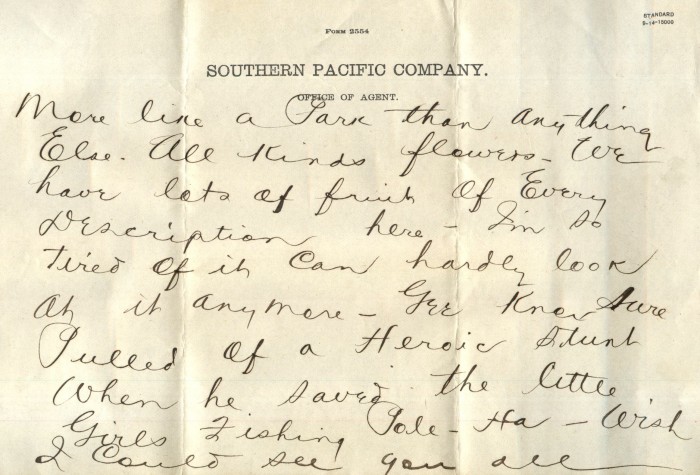 STANDARD
5-14-15000
FORM 2354
SOUTHERN PACIFIC COMPANY.
OFFICE OF AGENT.
More like a Park than anything
Else. All Kinds flowers - We
have lots of fruit Of Every
Description here - I'm so
tired Of it Can hardly look
At it anymore - Gee Knox Sure
Pulled Of a Heroic Stunt
When he saved the little
Girls Fishing Pole - Ha - Wish
I Could see you all